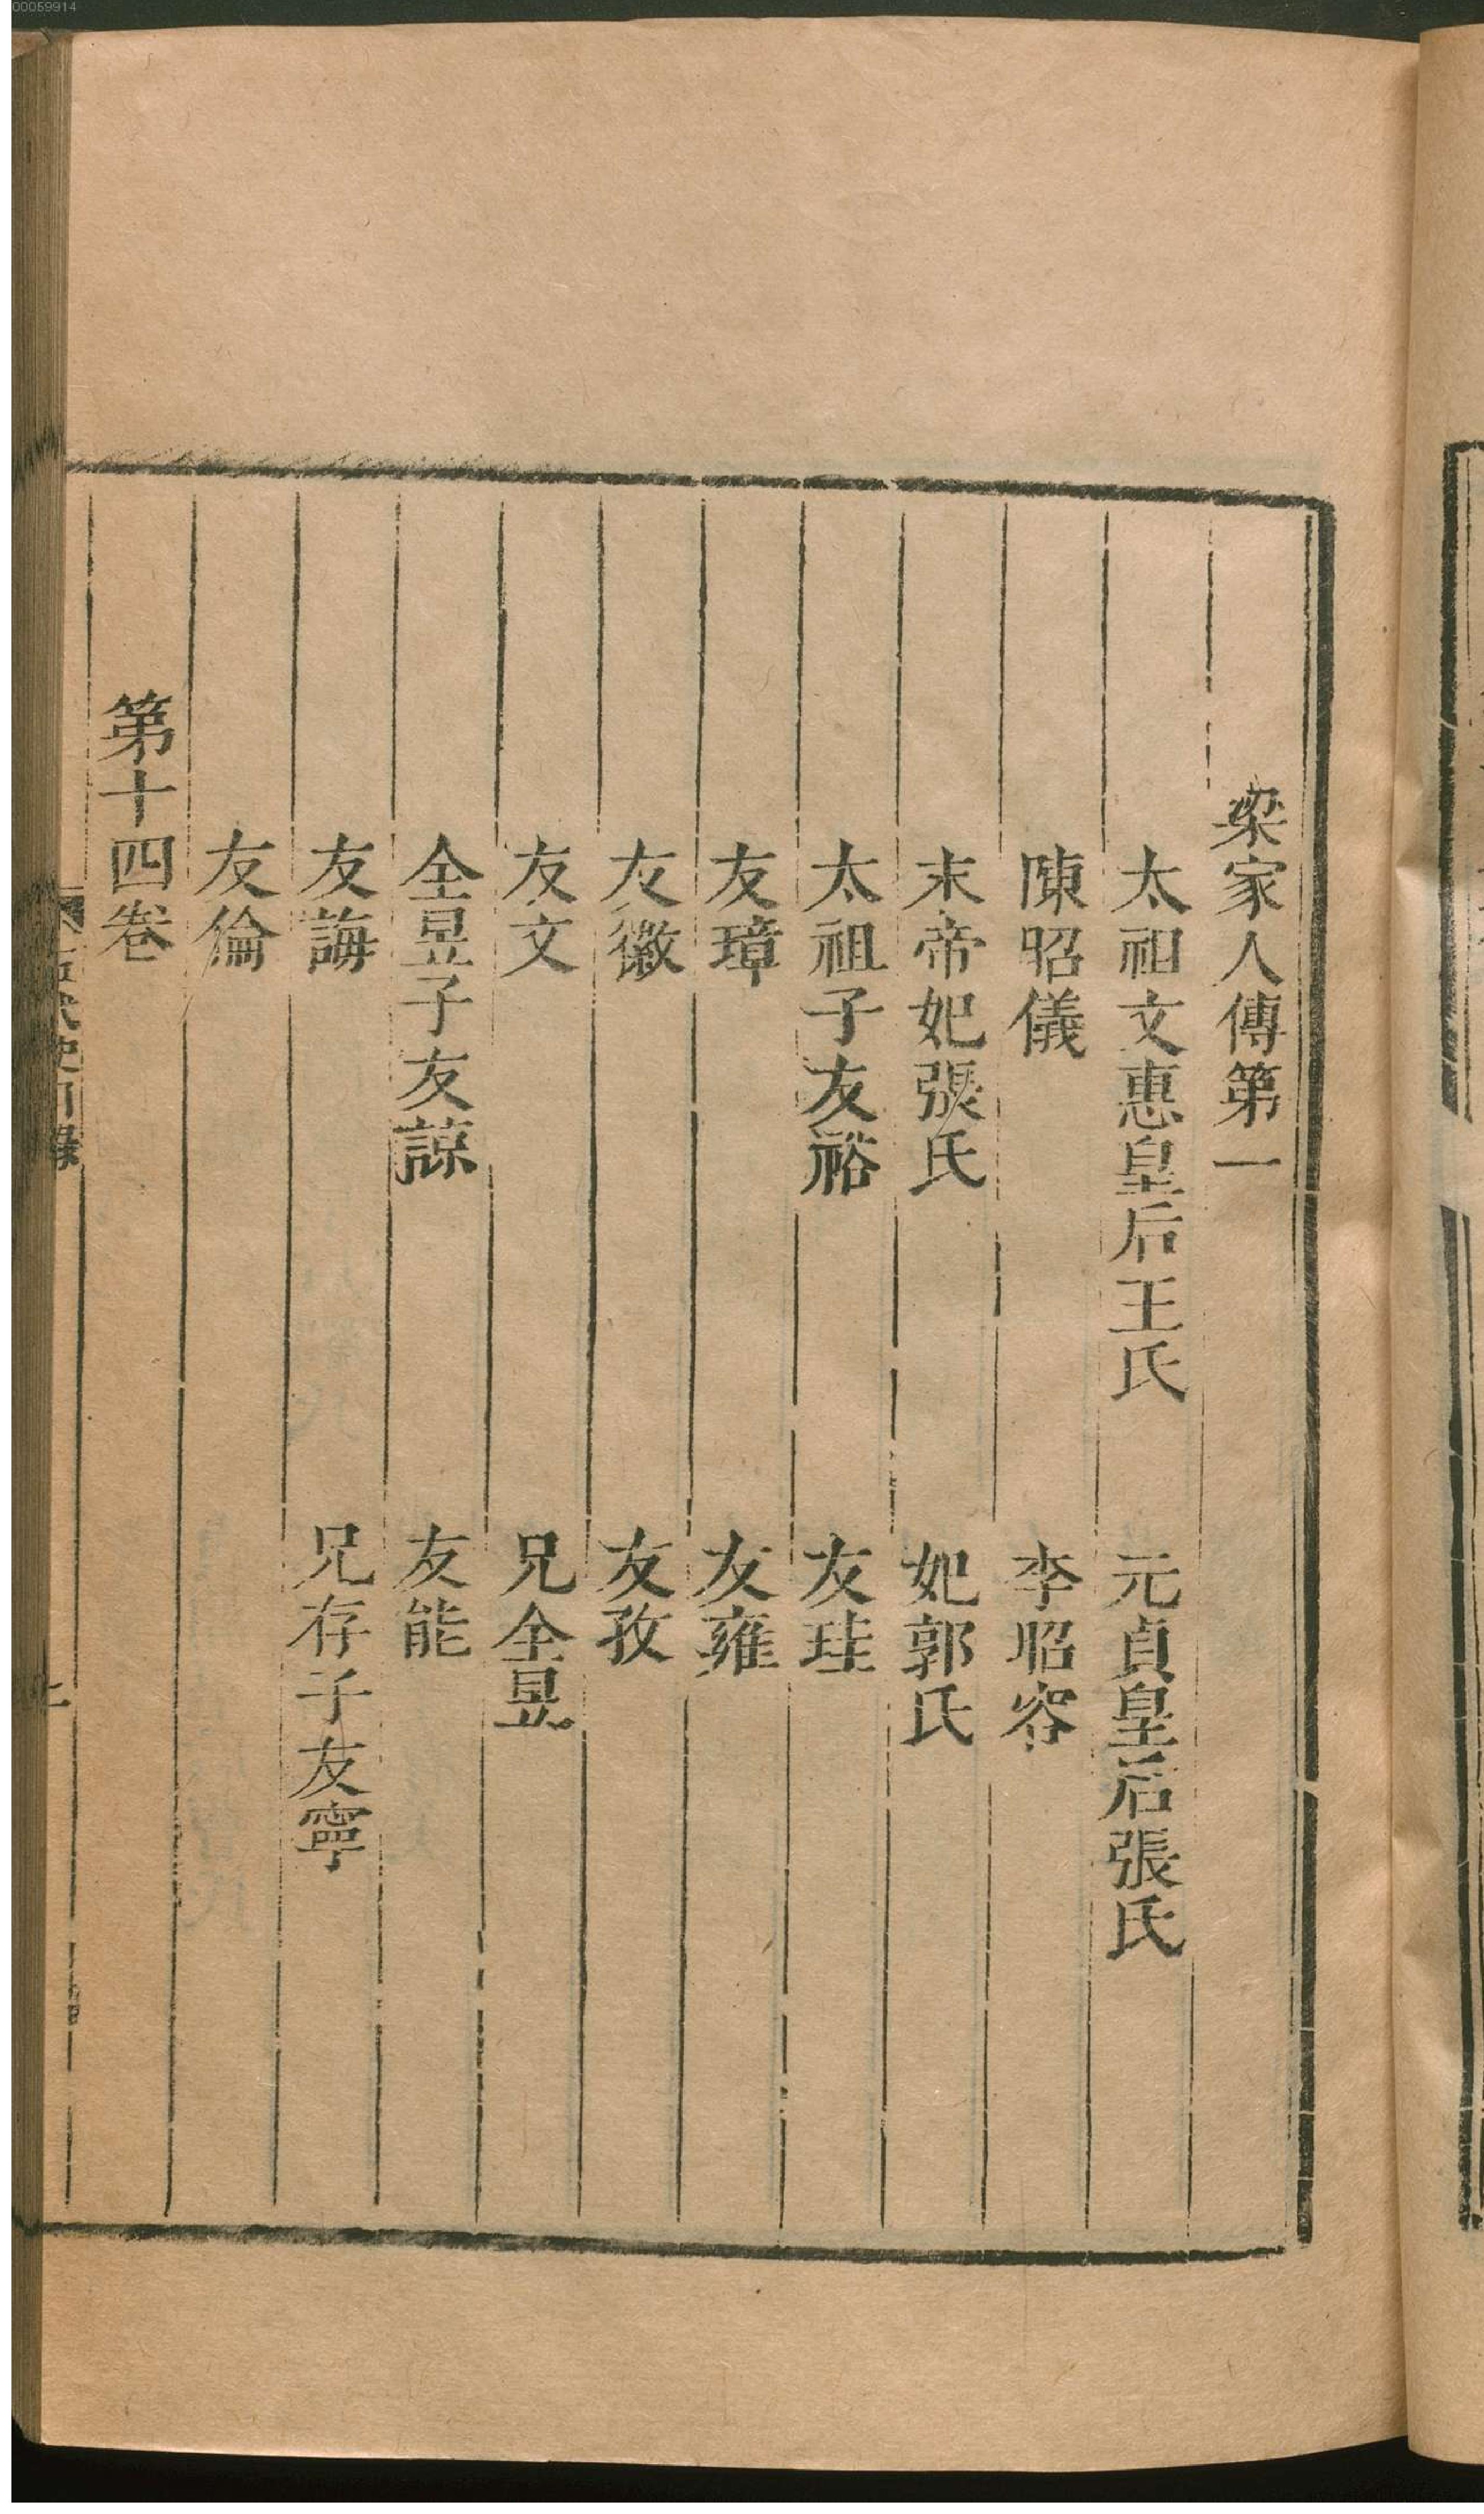 00059914
梁家人傳第一
太祖文惠皇后王氏　元貞皇后張氏
陳昭儀　李昭容
末帝妃張氏　妃郭氏
太祖子友裕　友珪
友璋　友雍
友徽　友孜
友文　兄全昱
全昱子友諒　友能
友誨　兄存子友寧
友倫
第十四卷